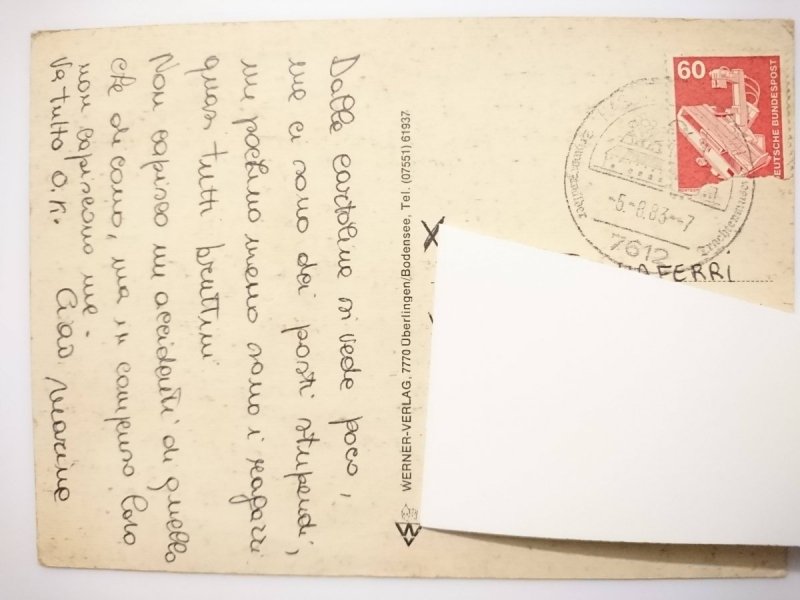 Dalle cartoline si vede poco,
ma ci sono dei posti stupendi,
un pochino meno sono i ragazzi
quasi tutti bruttini
Non capisco un accidenti di quello
che dicono, ma in compenso loro
non capiscono me.
Va tutto o.k. Ciao Marina
WERNER-VERLAG, 7770 Überlingen/Bodensee, Tel. (07551) 61937
60
DEUTSCHE BUNDESPOST
-5.-8.83--7
7612
Trachtenmuseum
FERRI